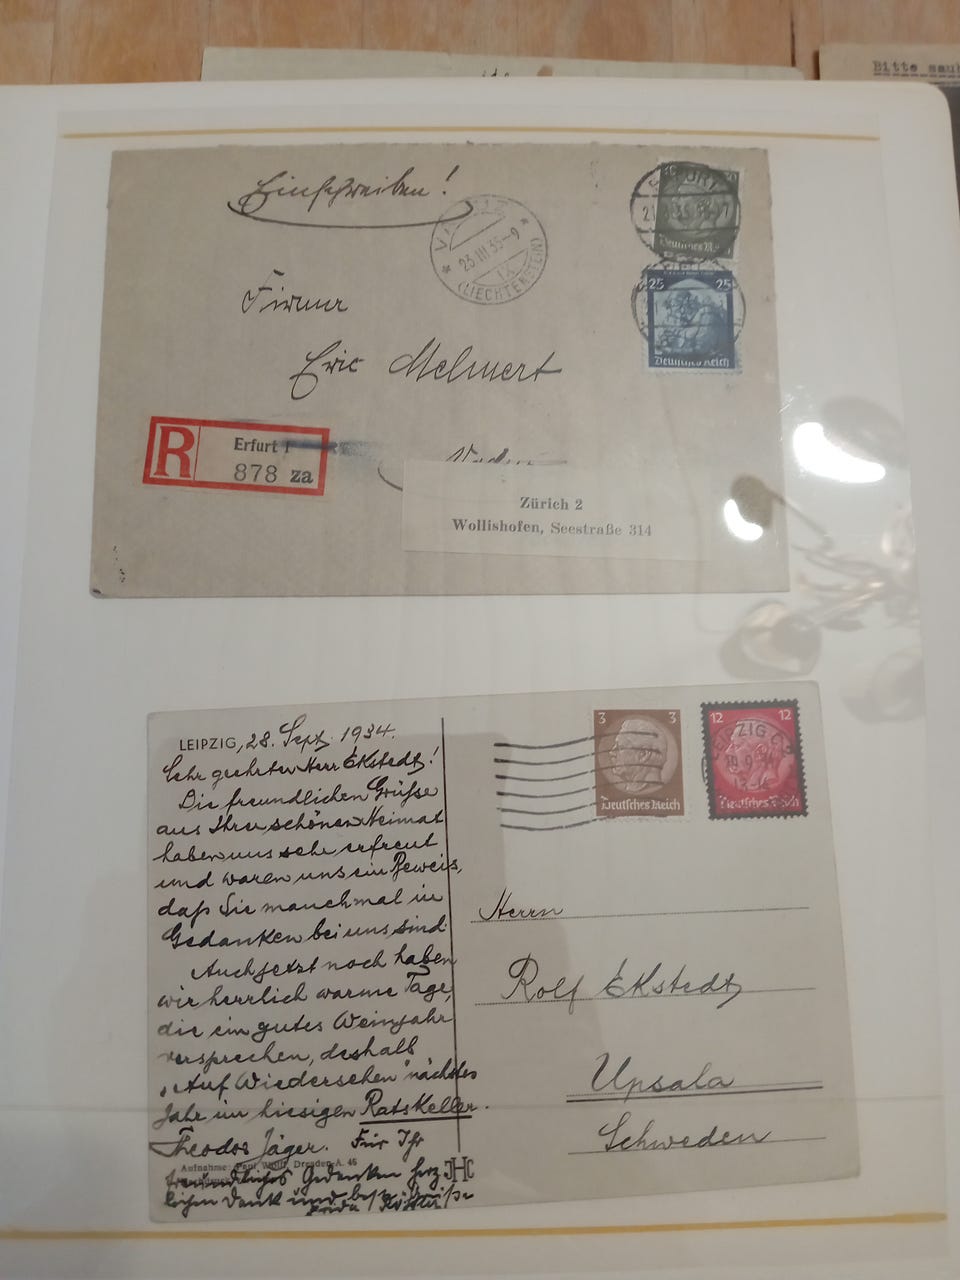 Bitte
Einschreiben!
VADUZ
23.III.35-9
(LIECHTENSTEIN)
ERFURT
Deutsches Reich
25 25
Deutsches Reich
Firma
Eric
R Erfurt 1
878 za
Zürich 2
Wollishofen, Seestraße 314
LEIPZIG, 28. Sept. 1934.
Sehr geehrter Herr Ekstedt!
Die freundlichen Grüsse
aus Ihrer schönen Heimat
haben uns sehr erfreut
und waren uns ein Beweis,
daß Sie manchmal in
Gedanken bei uns sind.
Auch jetzt noch haben
wir herrlich warme Tage,
die ein gutes Weinjahr
versprechen, deshalb
"Auf Wiedersehen" nächstes
Jahr im hiesigen Ratskeller.
Theodor Jäger. Für Ihr
Aufnahme: Paul Wolff, Dresden-A. 46
freundliches Gedenken herz
lichen Dank und beste Grüße
JHC
3 3
Deutsches Reich
12 12
LEIPZIG C
Deutsches Reich
Herrn
Rolf Ekstedt
Upsala
Schweden